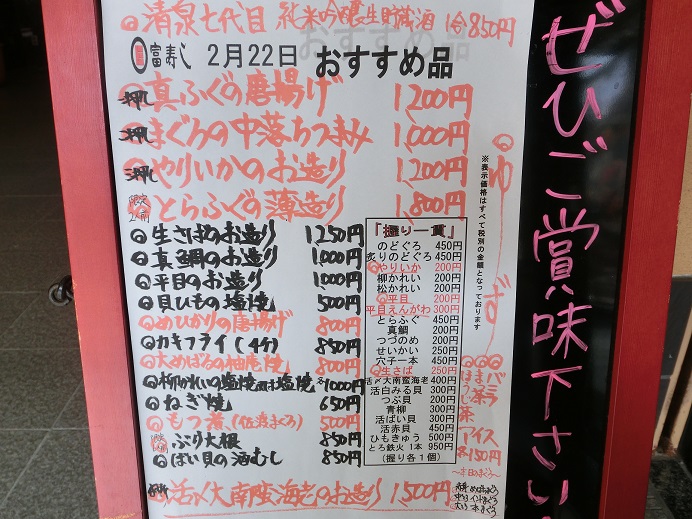 清泉七代目 純米吟醸生貯蔵酒 1合850円
富寿し 2月22日 おすすめ品
押し 真ふぐの唐揚げ 1,200円
押し まぐろの中落ちつまみ 1,000円
押し やりいかのお造り 1,200円
限定 とらふぐの薄造り 1,800円
生さばのお造り 1,250円
真鯛のお造り 1,000円
平目のお造り 1,000円
貝ひもの塩焼 500円
めひかりの唐揚げ 800円
カキフライ(4ケ) 850円
大めばるの柚庵焼 800円
柳かれいの塩焼 塩焼 各1000円
ねぎ焼 650円
もつ煮(佐渡まぐろ) 500円
ぶり大根 850円
ばい貝の酒むし 850円
活〆大南蛮海老のお造り 1,500円
「握り一貫」
のどぐろ 450円
炙りのどぐろ 450円
やりいか 200円
柳かれい 200円
松かれい 200円
平目 200円
平目えんがわ 300円
とらふぐ 450円
真鯛 200円
つづのめ 200円
せいかい 250円
穴子一本 450円
生さば 250円
活〆大南蛮海老 400円
活白みる貝 300円
つぶ貝 200円
青柳 300円
活ばい貝 300円
活赤貝 450円
ひもきゅう 500円
とろ鉄火 1本 950円
(握り各1個)
※表示価格はすべて税別の金額となっております
ゆず
バニラ
ほうじ茶
アイス
各150円
〜本日のまぐろ〜
ぜひご賞味下さい